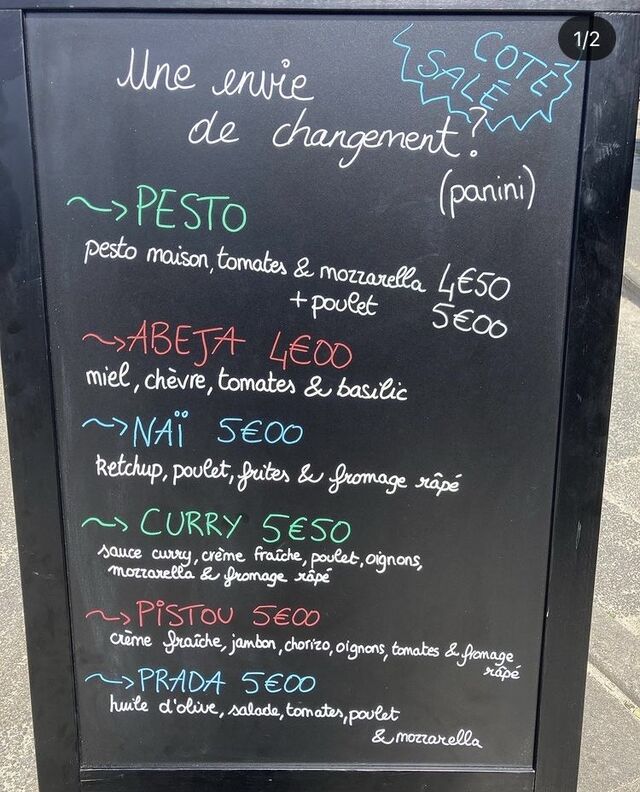 1/2
COTÉ
SALÉ
Une envie
de changement?
(panini)
~> PESTO
pesto maison, tomates & mozzarella 4€50
+ poulet 5€00
~> ABEJA 4€00
miel, chèvre, tomates & basilic
~> NAÏ 5€00
Ketchup, poulet, frites & fromage râpé
~> CURRY 5€50
sauce curry, crème fraîche, poulet, oignons,
mozzarella & fromage râpé
~> PiSTOU 5€00
crème fraîche, jambon, chorizo, oignons, tomates & fromage
râpé
~> PRADA 5€00
huile d'olive, salade, tomates, poulet
& mozzarella